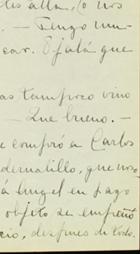 des allá, o nos
. — Tengo mu-
car. Ojalá que
as tampoco vino
— Que bueno. —
e compró a Carlos
dernalillo, que nos
a Angel en pago
objeto de empeño
cio, despues de todo.